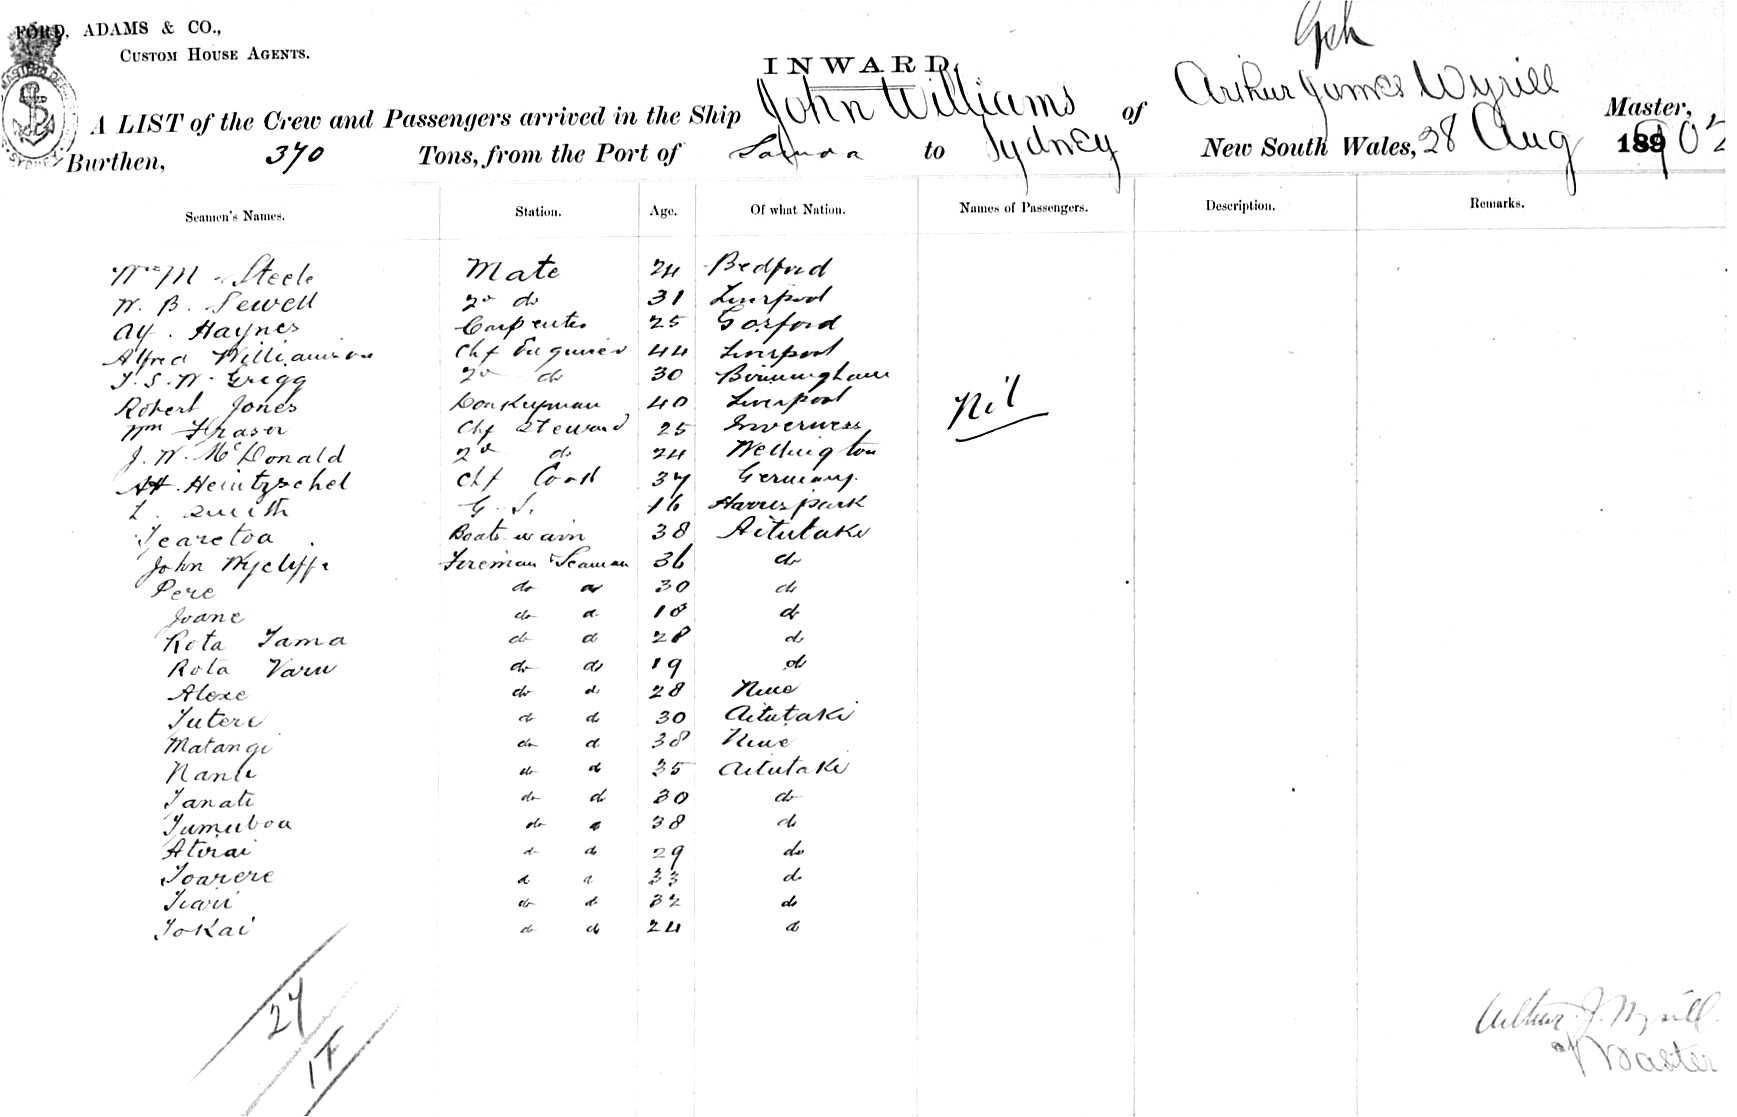 FORD, ADAMS & CO.,
CUSTOM HOUSE AGENTS.
INWARD.
A LIST of the Crew and Passengers arrived in the Ship John Williams of Arthur James Wyrill Master,
Burthen, 370 Tons, from the Port of Samoa to Sydney New South Wales, 28 Aug 189 902
Seamen's Names. Station. Age. Of what Nation. Names of Passengers. Description. Remarks.
Wm M Steele Mate 24 Bedford
W. B. Sewell 2nd do 31 Liverpool
Ay. Haynes Carpenter 25 Gosford
Alfred Williamson Chf Engineer 44 Liverpool
T. S. W. Grigg 2nd do 30 Birmingham
Robert Jones Donkeyman 40 Liverpool
Nil
Wm Fraser Chf Steward 25 Inverness
J. W. McDonald 2nd do 24 Wellington
Heintzschel Chf Cook 37 Germany.
L. Smith G. S. 16 Harris park
Tearetoa Boatswain 38 Aitutaki
John Wycliffe Fireman & Seaman 36 do
Pere do do 30 do
Joane do do 18 do
Rota Tama do do 28 do
Rota Varu do do 19 do
Alexe do do 28 Niue
Tutere do do 30 Aitutaki
Matangi do do 38 Niue
Nanu do do 35 Aitutaki
Tanati do do 30 do
Tumuboa do do 38 do
Aterai do do 29 do
Toarere do do 33 do
Tiavii do do 32 do
Tokai do do 24 do
27
1F
Arthur J. Wyrill.
Master